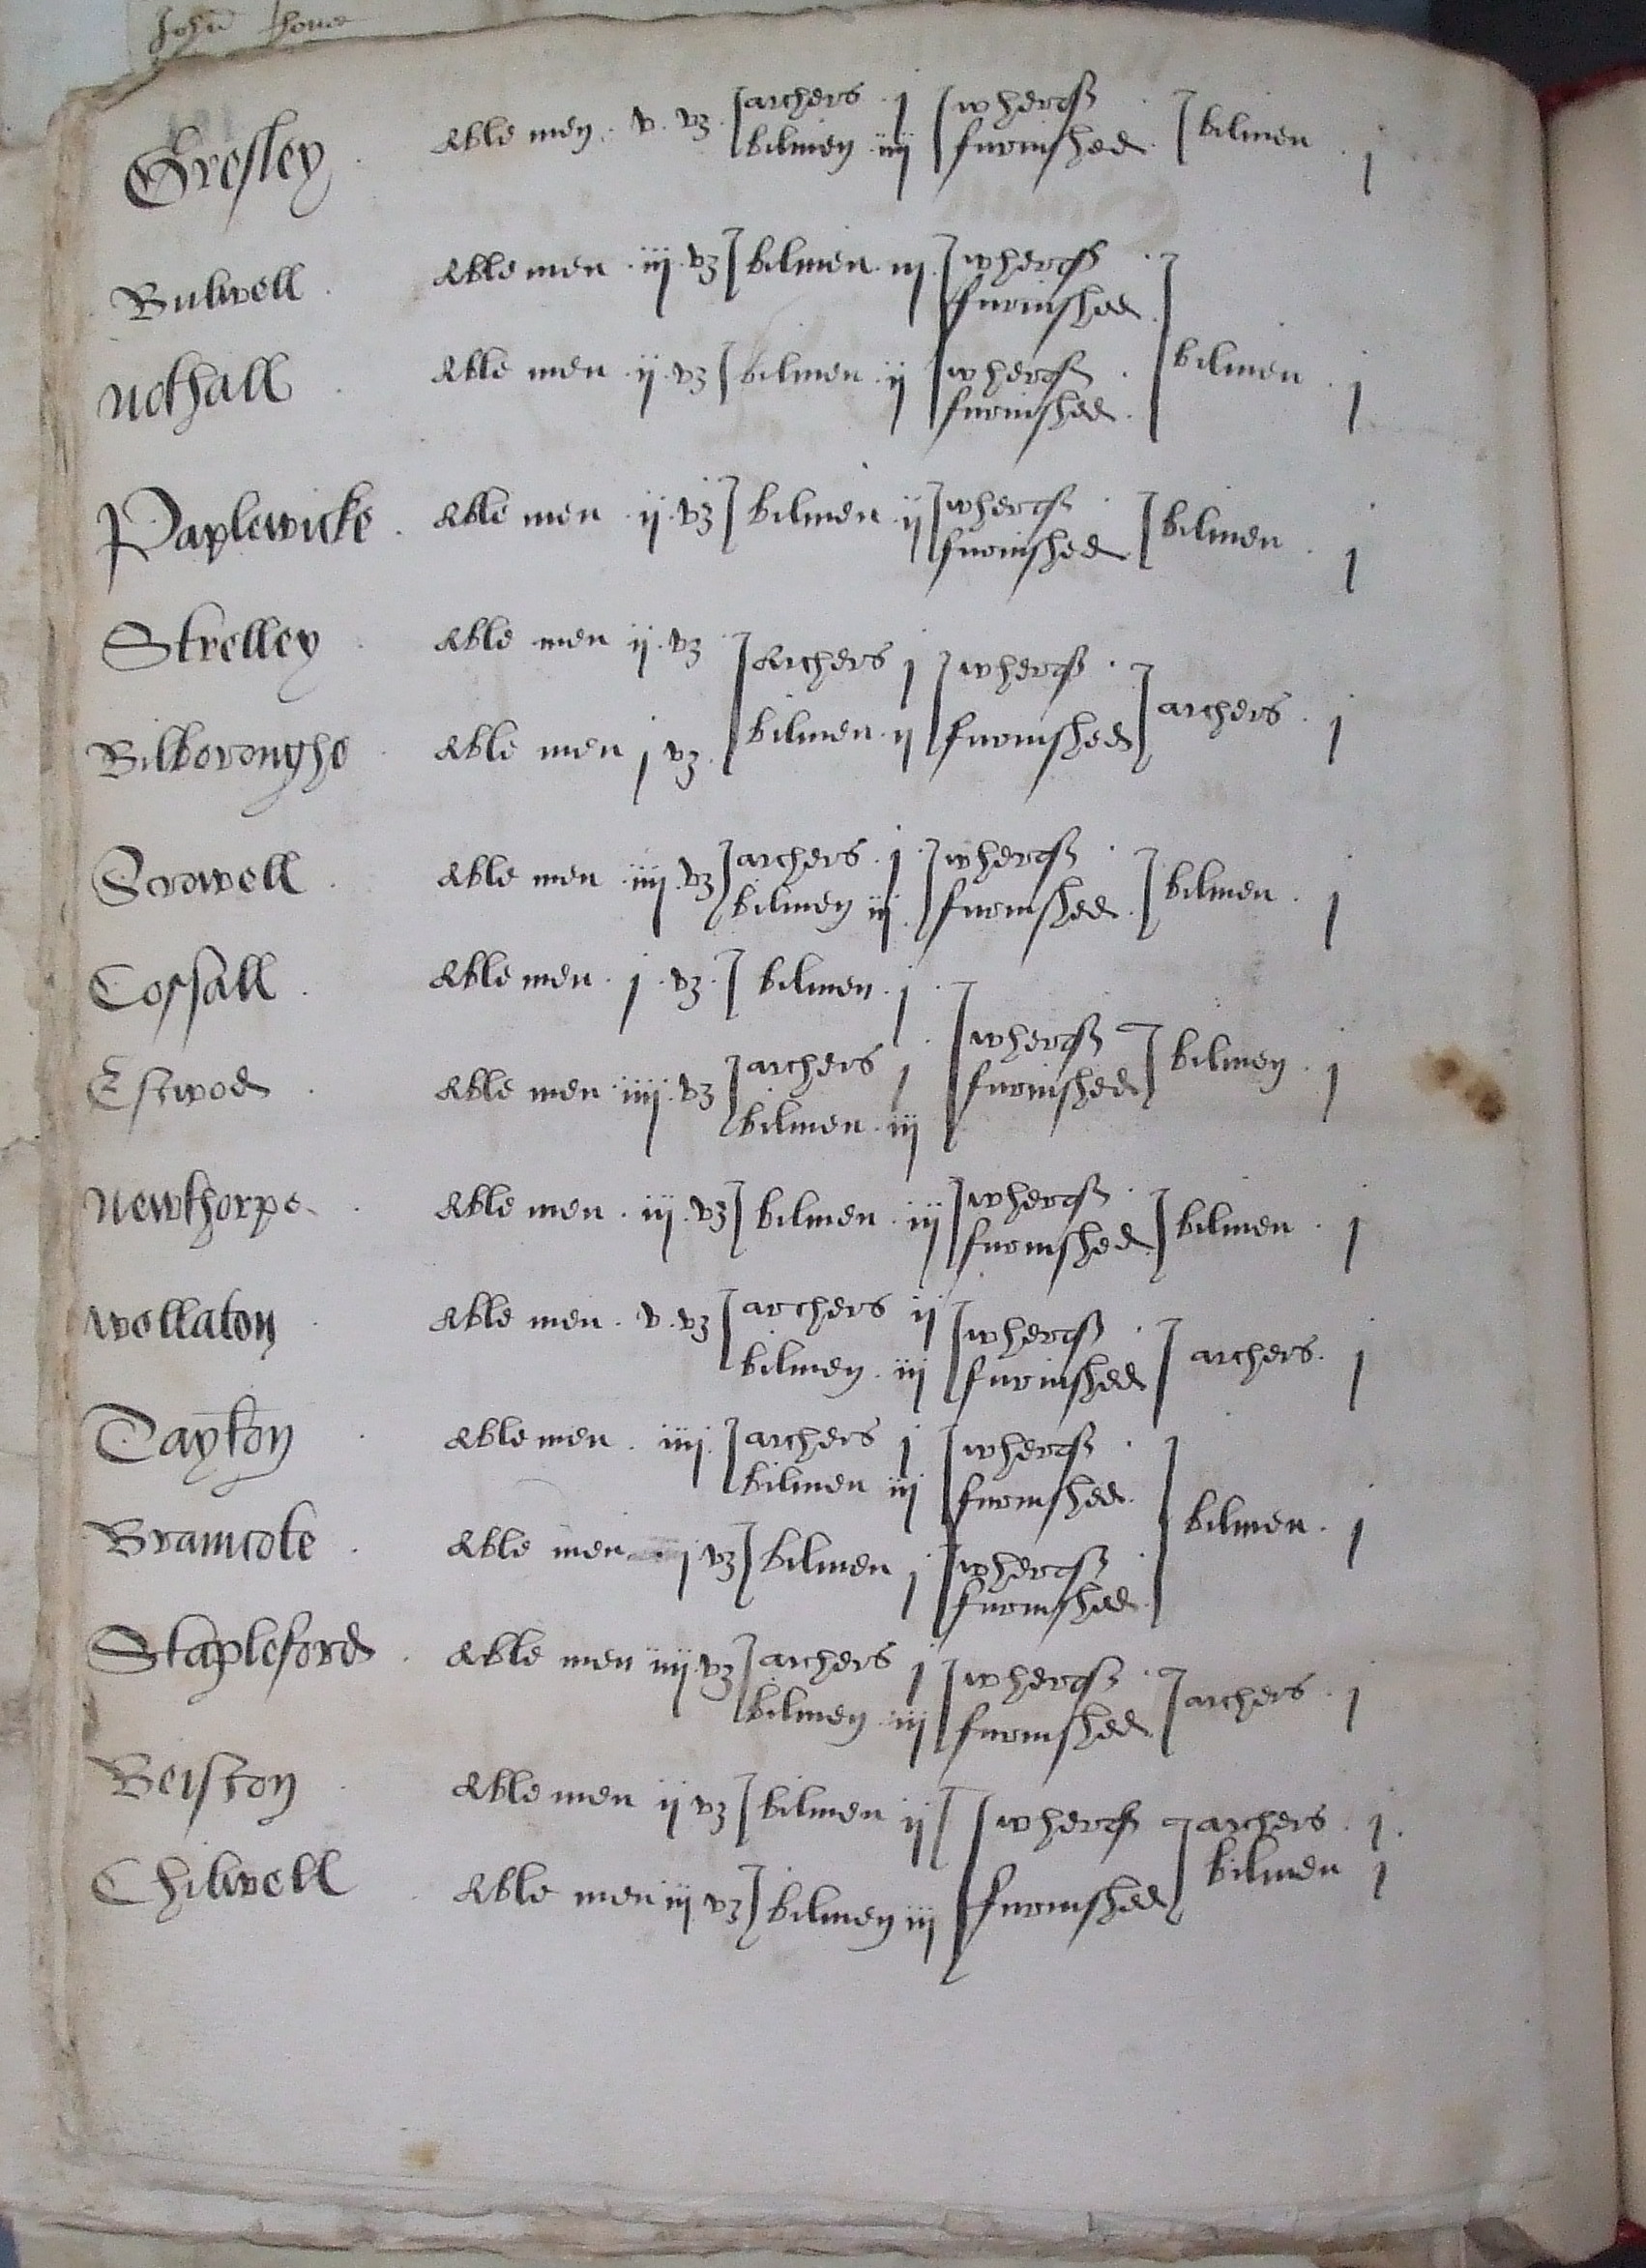 John
Gresley . Able men . v . vz . archers . j wherof bilmen . j
bilmen . iiij furnished
Bulwell . Able men . iij . vz bilmen . iij wherof
furnished
Nothall . Able men . ij . vz bilmen . ij wherof bilmen . j
furnished
Paplewicke . Able men . ij . vz bilmen . ij wherof bilmen . j
furnished
Strelley . Able men ij . vz Archers j wherof archers . j
Bilboroughe . Able men j vz . bilmen . ij furnished
Able men . iiij . vz archers . j wherof bilmen . j
bilmen iij furnished
Cossall . Able men . j . vz . bilmen . j
wherof bilmen . j
Estwod . Able men . iiij . vz archers j furnished
bilmen . iij
Newthorpe . Able men . iij . vz bilmen . iij wherof bilmen . j
furnished
Wollaton . Able men . v . vz archers ij wherof archers . j
bilmen . iij furnished
Able men . iiij . archers j wherof
bilmen iij furnished bilmen . j
Bramcote . Able men j vz bilmen j wherof
furnished
Stapleford . Able men iiij . vz archers j wherof archers . j
bilmen iij furnished
Beiston . Able men ij vz bilmen ij wherof archers . j .
Chilwell . Able men iij vz bilmen iij furnished bilmen j